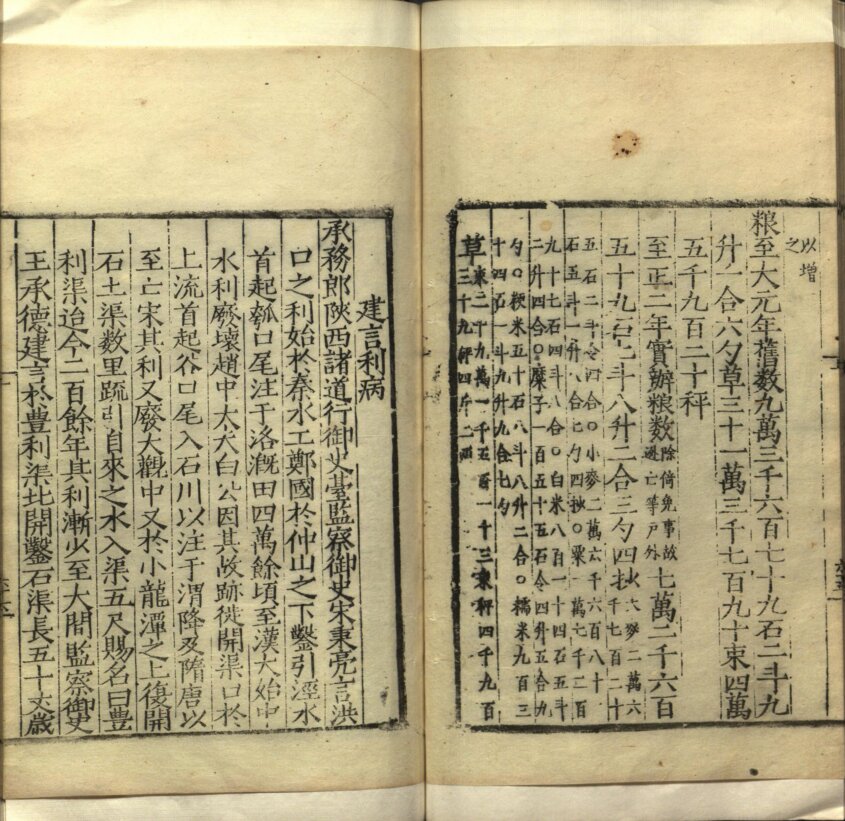 以增
之
粮至大元年舊数九萬三千六百七十九石二斗九
升一合六勺草三十一萬三千七百九十束四萬
五千九百二十秤
至正二年實辦粮数除倚免事故逃亡等戶外七萬二千六百
五十九石七斗八升二合三勺四抄大麥二萬六千七百二十
五石二斗令四合○小麥二萬六千六百八十
石五斗一升八合七勺四抄○粟一萬六千二百
九十七石四斗八合○白米八百一十四石五斗
二升四合○糜子一百五十五石令四升五合九
勺○粳米五十石八斗八升二合○糯米九百三
十四石一斗九升九合七勺
草束二十九萬一千五百一十三束秤四千九百
三十九秤四斤二两
建言利病
承務郎陝西諸道行御史臺監察御史宋秉亮言洪
口之利始於秦水工鄭國於仲山之下鑿引涇水
首起瓠口尾注于洛溉田四萬餘頃至漢大始中
水利廢壞趙中大夫白公因其故跡徙開渠口於
上流首起谷口尾入石川以注于渭降及隋唐以
至亡宋其利又廢大觀中又於小龍潭之上復開
石土渠数里疏引自來之水入渠五尺賜名曰豊
利渠迨今二百餘年其利漸少至大間監察御史
王承德建言於豊利渠北開鑿石渠長五十丈歲